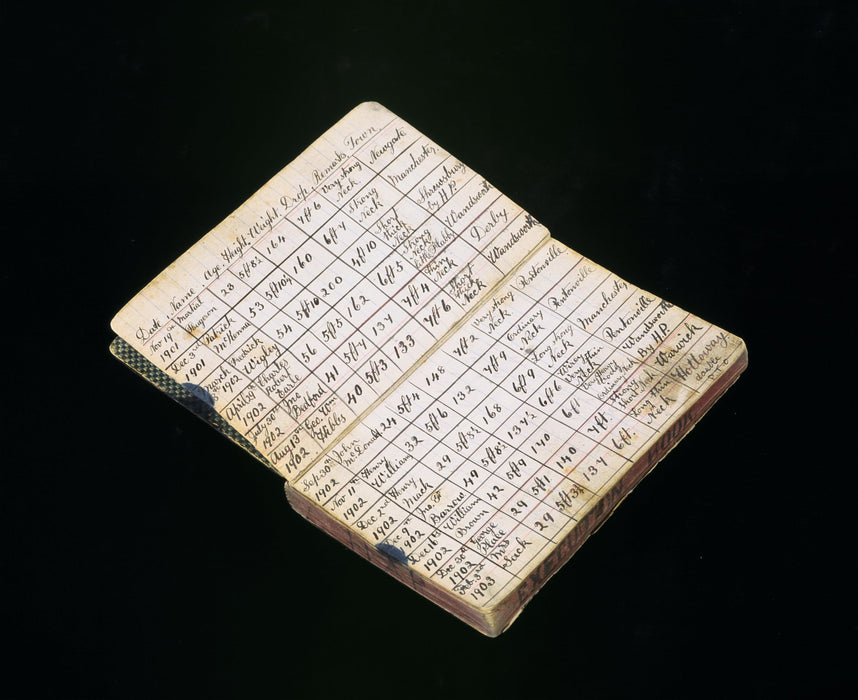 Date Name Age Height Weight Drop Remarks Town
Nov 19th 1901 Marcel 28 5ft 8½ 164 7ft 6 Very strong Neck Newgate
Dec 3rd 1901 Patrick McKenna 53 5ft 10½ 160 6ft 7 Strong Neck Manchester
March 1902 Wigley 54 5ft 10 200 4ft 10 Short thick Neck Shrewsbury by H.P.
April 30 1902 Charles Robert Earle 56 5ft 5 162 6ft 5 Strong Neck Wandsworth
July 30th 1902 Jno Bedford 41 5ft 4 137 7ft 4 thin Neck Derby
Aug 13th 1902 Geo. Wm Hibbs 40 5ft 3 133 7ft 6 Short thick Neck Wandsworth
Sep 30th 1902 John McDonald 24 5ft 4 148 7ft 2 Very strong Neck Pentonville
Nov 11th 1902 Henry William 32 5ft 6 132 7ft 9 Ordinary Neck Pentonville
Dec 2nd 1902 Henry Mack 29 5ft 5½ 168 6ft 9 Long strong Neck Manchester
Dec 9th 1902 Barrow 49 5ft 8½ 137½ 6ft 6 Pentonville
Dec 16th William Brown 42 5ft 9 140 6ft Wandsworth By H.P.
Dec 30th 1902 George Place 29 5ft 1 140 7ft Warwick
Feb 3rd 1903 Miss Sack 29 5ft 3¾ 137 6ft. Long thin Neck Holloway double
EXECUTION